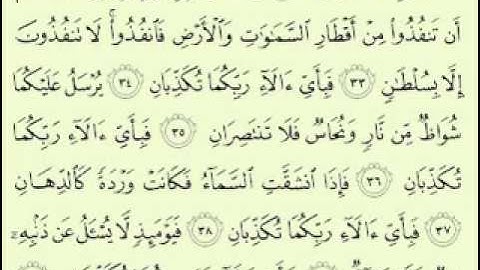 أَن تَنفُذُوا۟ مِنْ أَقْطَارِ ٱلسَّمَٰوَٰتِ وَٱلْأَرْضِ فَٱنفُذُوا۟ لَا تَنفُذُونَ
إِلَّا بِسُلْطَٰنٍ ٣٣ فَبِأَىِّ ءَالَآءِ رَبِّكُمَا تُكَذِّبَانِ ٣٤ يُرْسَلُ عَلَيْكُمَا
شُوَاظٌ مِّن نَّارٍ وَنُحَاسٌ فَلَا تَنتَصِرَانِ ٣٥ فَبِأَىِّ ءَالَآءِ رَبِّكُمَا
تُكَذِّبَانِ ٣٦ فَإِذَا ٱنشَقَّتِ ٱلسَّمَآءُ فَكَانَتْ وَرْدَةً كَٱلدِّهَانِ
٣٧ فَبِأَىِّ ءَالَآءِ رَبِّكُمَا تُكَذِّبَانِ ٣٨ فَيَوْمَئِذٍ لَّا يُسْـَٔلُ عَن ذَنۢبِهِۦٓ